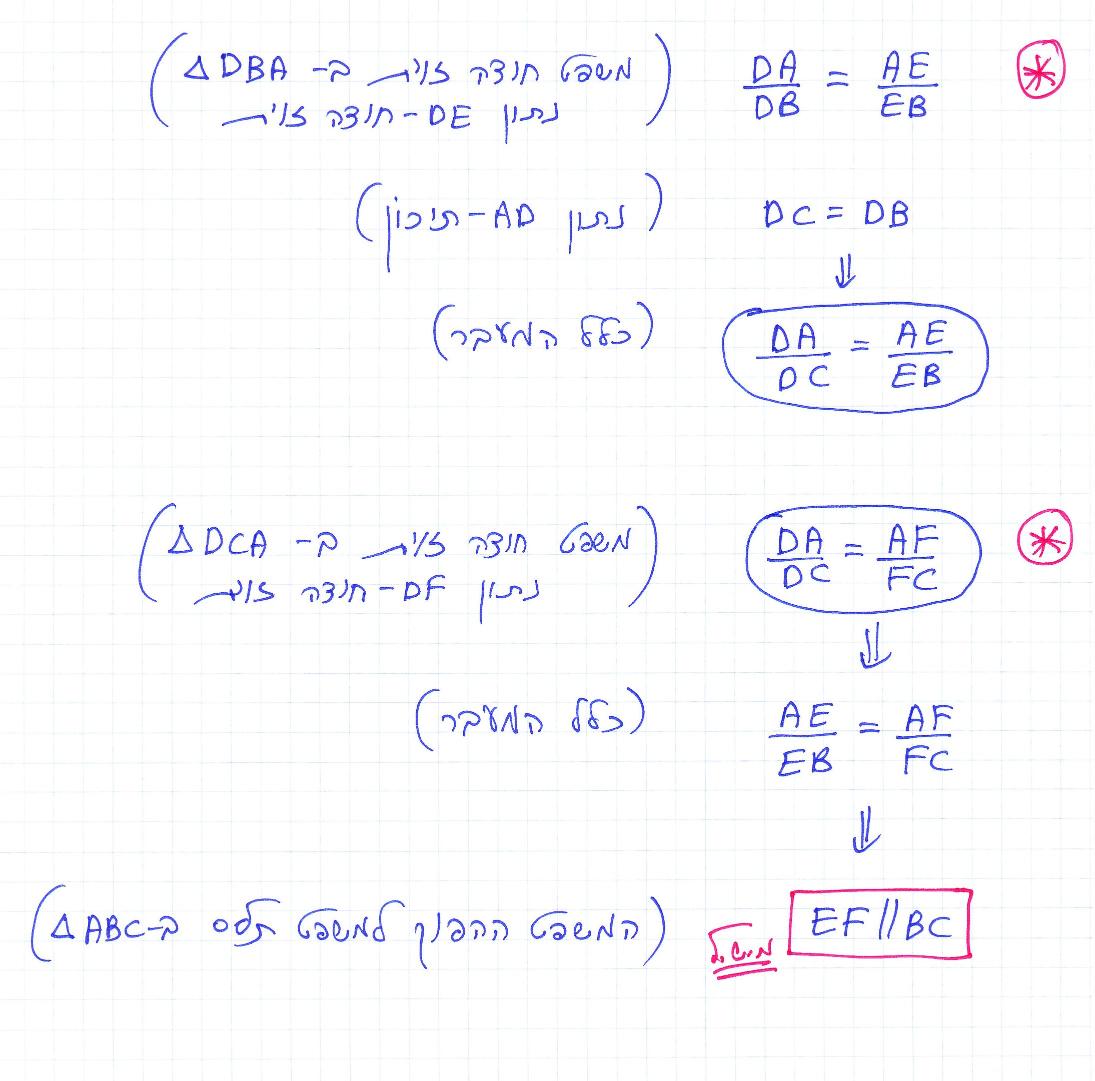 ⊛ DA/DB = AE/EB (משפט חוצה זוית ב- ΔDBA
נתון DE - חוצה זוית)
DC = DB (נתון AD - תיכון)
⇓
DA/DC = AE/EB (כלל המעבר)
⊛ DA/DC = AF/FC (משפט חוצה זוית ב- ΔDCA
נתון DF - חוצה זוית)
⇓
AE/EB = AF/FC (כלל המעבר)
⇓
EF//BC מ.ש.ל (המשפט ההפוך למשפט תלס ב-ΔABC)